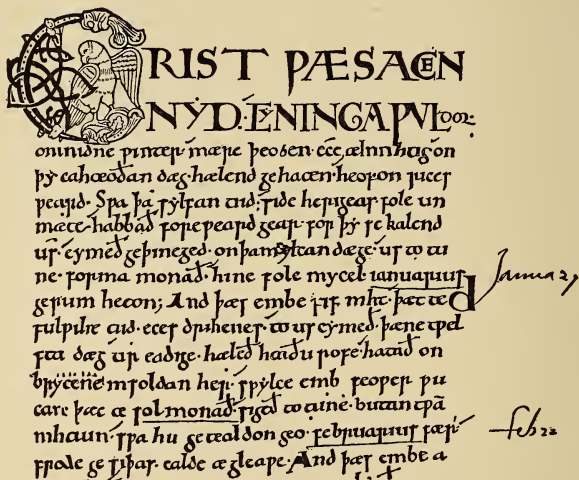 CRIST ǷÆS ACEN
NYD. CYNINGA ǷULdor.
onmidne ƿinter mære þeoden. ece ælmihtig. on
þy eahteoðan dæg. hælend gehaten. heofon rices
ƿeard. Sƿa þa sylfan tiid. side herigeas folc un
mæte. habbað foreƿeard gear. for þy se kalend
us. cymeð geþincged. on þam sylfan dæge. us to tu
ne. forma monað. hine folc mycel ianuarius
gerum heton; And þæs embe fif niht. þætte
fulƿihte tiid. eces drihtnes. to us cymeð. þæne tƿel
fta dæg tir eadige. hæleð heaðu rofe. hatað on
brytene in foldan her. sƿylce emb feoƿer ƿu
can þætte solmonað. sigeð to tune. butan tƿa
nihtum. sƿa hit getealdon geo. februarius fær.
frode gesiþas. ealde ægleaƿe. And þæs embe a
January
feb